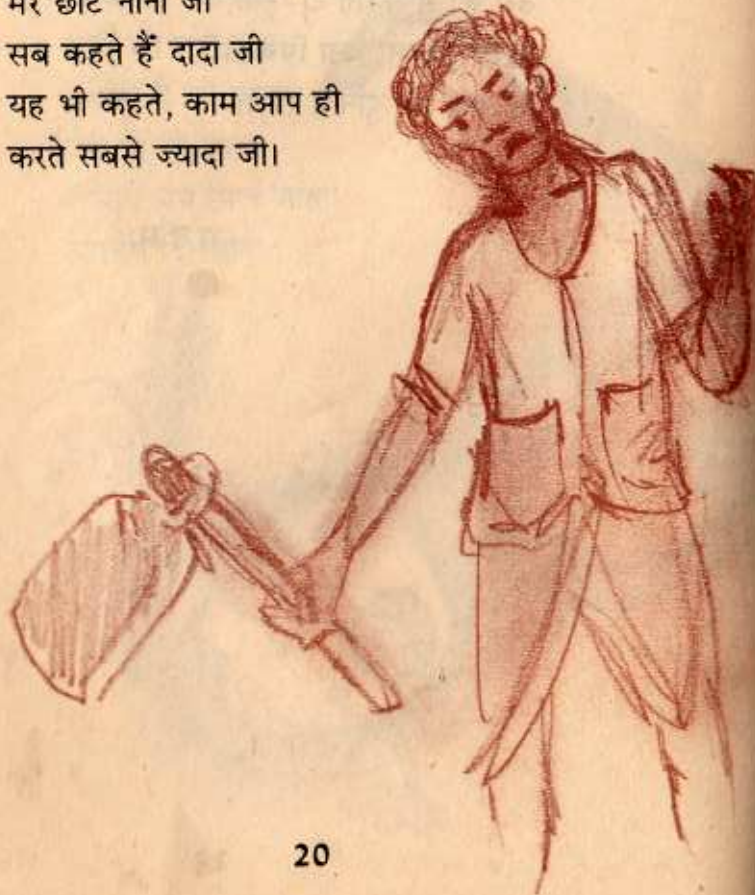 मेरे छोटे नाना जी
सब कहते हैं दादा जी
यह भी कहते, काम आप ही
करते सबसे ज़्यादा जी।
20